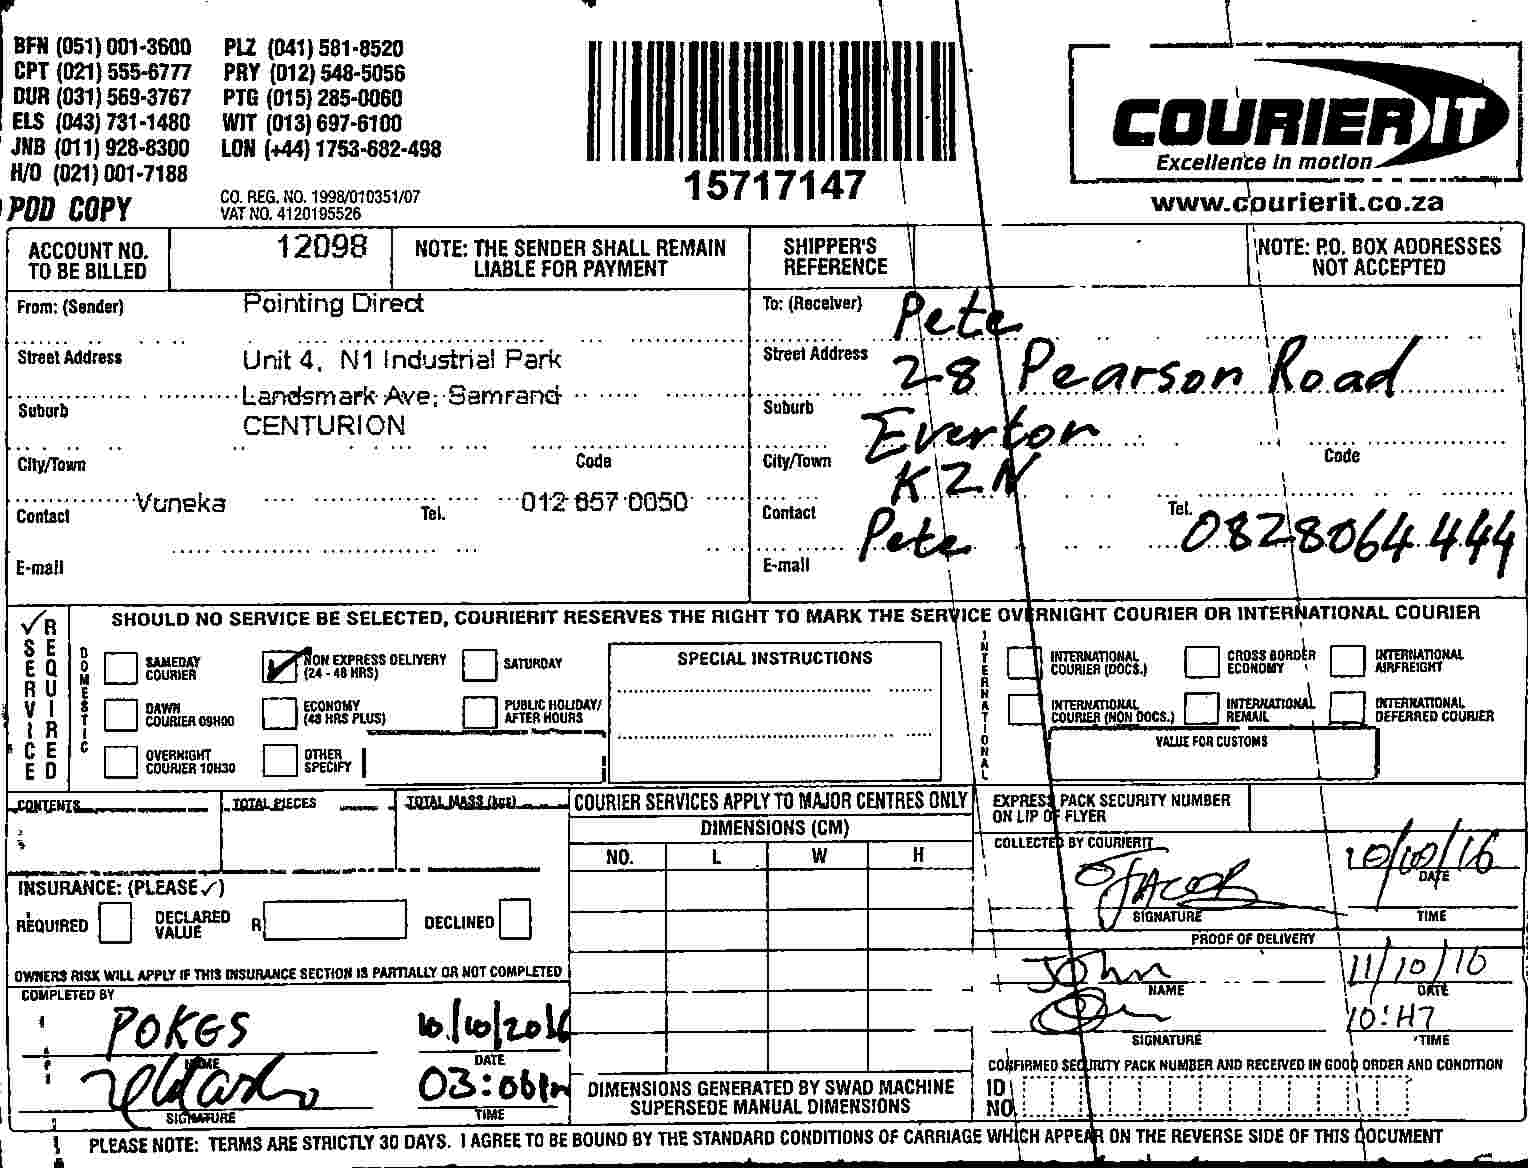 BFN (051) 001-3600 PLZ (041) 581-8520
CPT (021) 555-6777 PRY (012) 548-5056
DUR (031) 569-3767 PTG (015) 285-0060
ELS (043) 731-1480 WIT (013) 697-6100
JNB (011) 928-8300 LON (+44) 1753-682-498
H/O (021) 001-7188
POD COPY
CO. REG. NO. 1998/010351/07
VAT NO. 4120195526
15717147
COURIER IT
Excellence in motion
www.courierit.co.za
ACCOUNT NO. TO BE BILLED 12098
NOTE: THE SENDER SHALL REMAIN LIABLE FOR PAYMENT
SHIPPER'S REFERENCE
NOTE: P.O. BOX ADDRESSES NOT ACCEPTED
From: (Sender) Pointing Direct
Street Address Unit 4, N1 Industrial Park
Suburb Landsmark Ave, Samrand
CENTURION
City/Town Code
Contact Vuneka Tel. 012 657 0050
E-mail
To: (Receiver) Pete
Street Address 28 Pearson Road
Suburb Everton
City/Town KZN Code
Contact Pete Tel. 0828064444
E-mail
✓ SERVICE REQUIRED
SHOULD NO SERVICE BE SELECTED, COURIERIT RESERVES THE RIGHT TO MARK THE SERVICE OVERNIGHT COURIER OR INTERNATIONAL COURIER
DOMESTIC
SAMEDAY COURIER
✓ NON EXPRESS DELIVERY (24 - 48 HRS)
SATURDAY
DAWN COURIER 09H00
ECONOMY (48 HRS PLUS)
PUBLIC HOLIDAY/ AFTER HOURS
OVERNIGHT COURIER 10H30
OTHER SPECIFY
SPECIAL INSTRUCTIONS
INTERNATIONAL
INTERNATIONAL COURIER (DOCS.)
CROSS BORDER ECONOMY
INTERNATIONAL AIRFREIGHT
INTERNATIONAL COURIER (NON DOCS.)
INTERNATIONAL REMAIL
INTERNATIONAL DEFERRED COURIER
VALUE FOR CUSTOMS
CONTENTS TOTAL PIECES TOTAL MASS (kg)
INSURANCE: (PLEASE ✓)
REQUIRED DECLARED VALUE R DECLINED
OWNERS RISK WILL APPLY IF THIS INSURANCE SECTION IS PARTIALLY OR NOT COMPLETED
COMPLETED BY
POKGS 10/10/2016
NAME DATE
03:06
SIGNATURE TIME
COURIER SERVICES APPLY TO MAJOR CENTRES ONLY
DIMENSIONS (CM)
NO. L W H
DIMENSIONS GENERATED BY SWAD MACHINE SUPERSEDE MANUAL DIMENSIONS
EXPRESS PACK SECURITY NUMBER ON LIP OF FLYER
COLLECTED BY COURIERIT
JACOB 10/10/16
DATE
SIGNATURE TIME
PROOF OF DELIVERY
John 11/10/16
NAME DATE
10:H7
SIGNATURE TIME
CONFIRMED SECURITY PACK NUMBER AND RECEIVED IN GOOD ORDER AND CONDITION
ID NO.
PLEASE NOTE: TERMS ARE STRICTLY 30 DAYS. I AGREE TO BE BOUND BY THE STANDARD CONDITIONS OF CARRIAGE WHICH APPEAR ON THE REVERSE SIDE OF THIS DOCUMENT